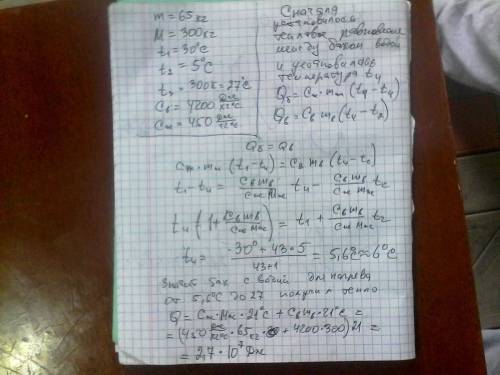 m = 65кг
M = 300кг
t₁ = 30°C
t₂ = 5°C
t₃ = 300K = 27°C
Cв = 4200 Дж/кг°C
Cж = 450 Дж/кг°C
Сначала
установилось
тепловое равновесие
между баком водой
и установилась
температура t₄
Qб = Cж·mж (t₁ - t₄)
Qв = Cв mв (t₄ - t₂)
Qб = Qв
Cж·mж (t₁ - t₄) = Cв mв (t₄ - t₂)
t₁ - t₄ = Cв mв/Cж mж t₄ - Cв mв/Cж mж t₂
t₄ (1 + Cв mв/Cж mж) = t₁ + Cв mв/Cж mж t₂
t₄ = 30° + 43·5/43+1 = 5,6°C ≈ 6°C
Значит бак с водой для нагрева
от 5,6°C до 27 получил тепло
Q = Cж·mж·21°C + Cв mв·21°C =
= (450 Дж/кг°C · 65кг + 4200·300) 21 =
= 2,7·10⁷ Дж